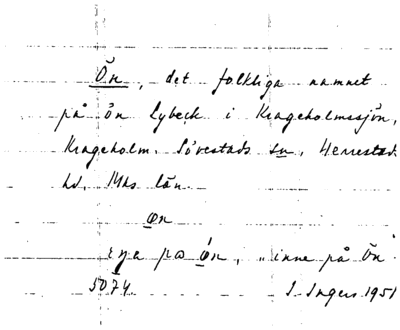 Ön, det folkliga namnet
på ön Lybeck i Krageholmssjön,
Krageholm. Sövestads sn, Herrestads
hd. Mhs län.
øn
pɷ ǿn, „inne på Ön"
5074. I. Ingers 1951